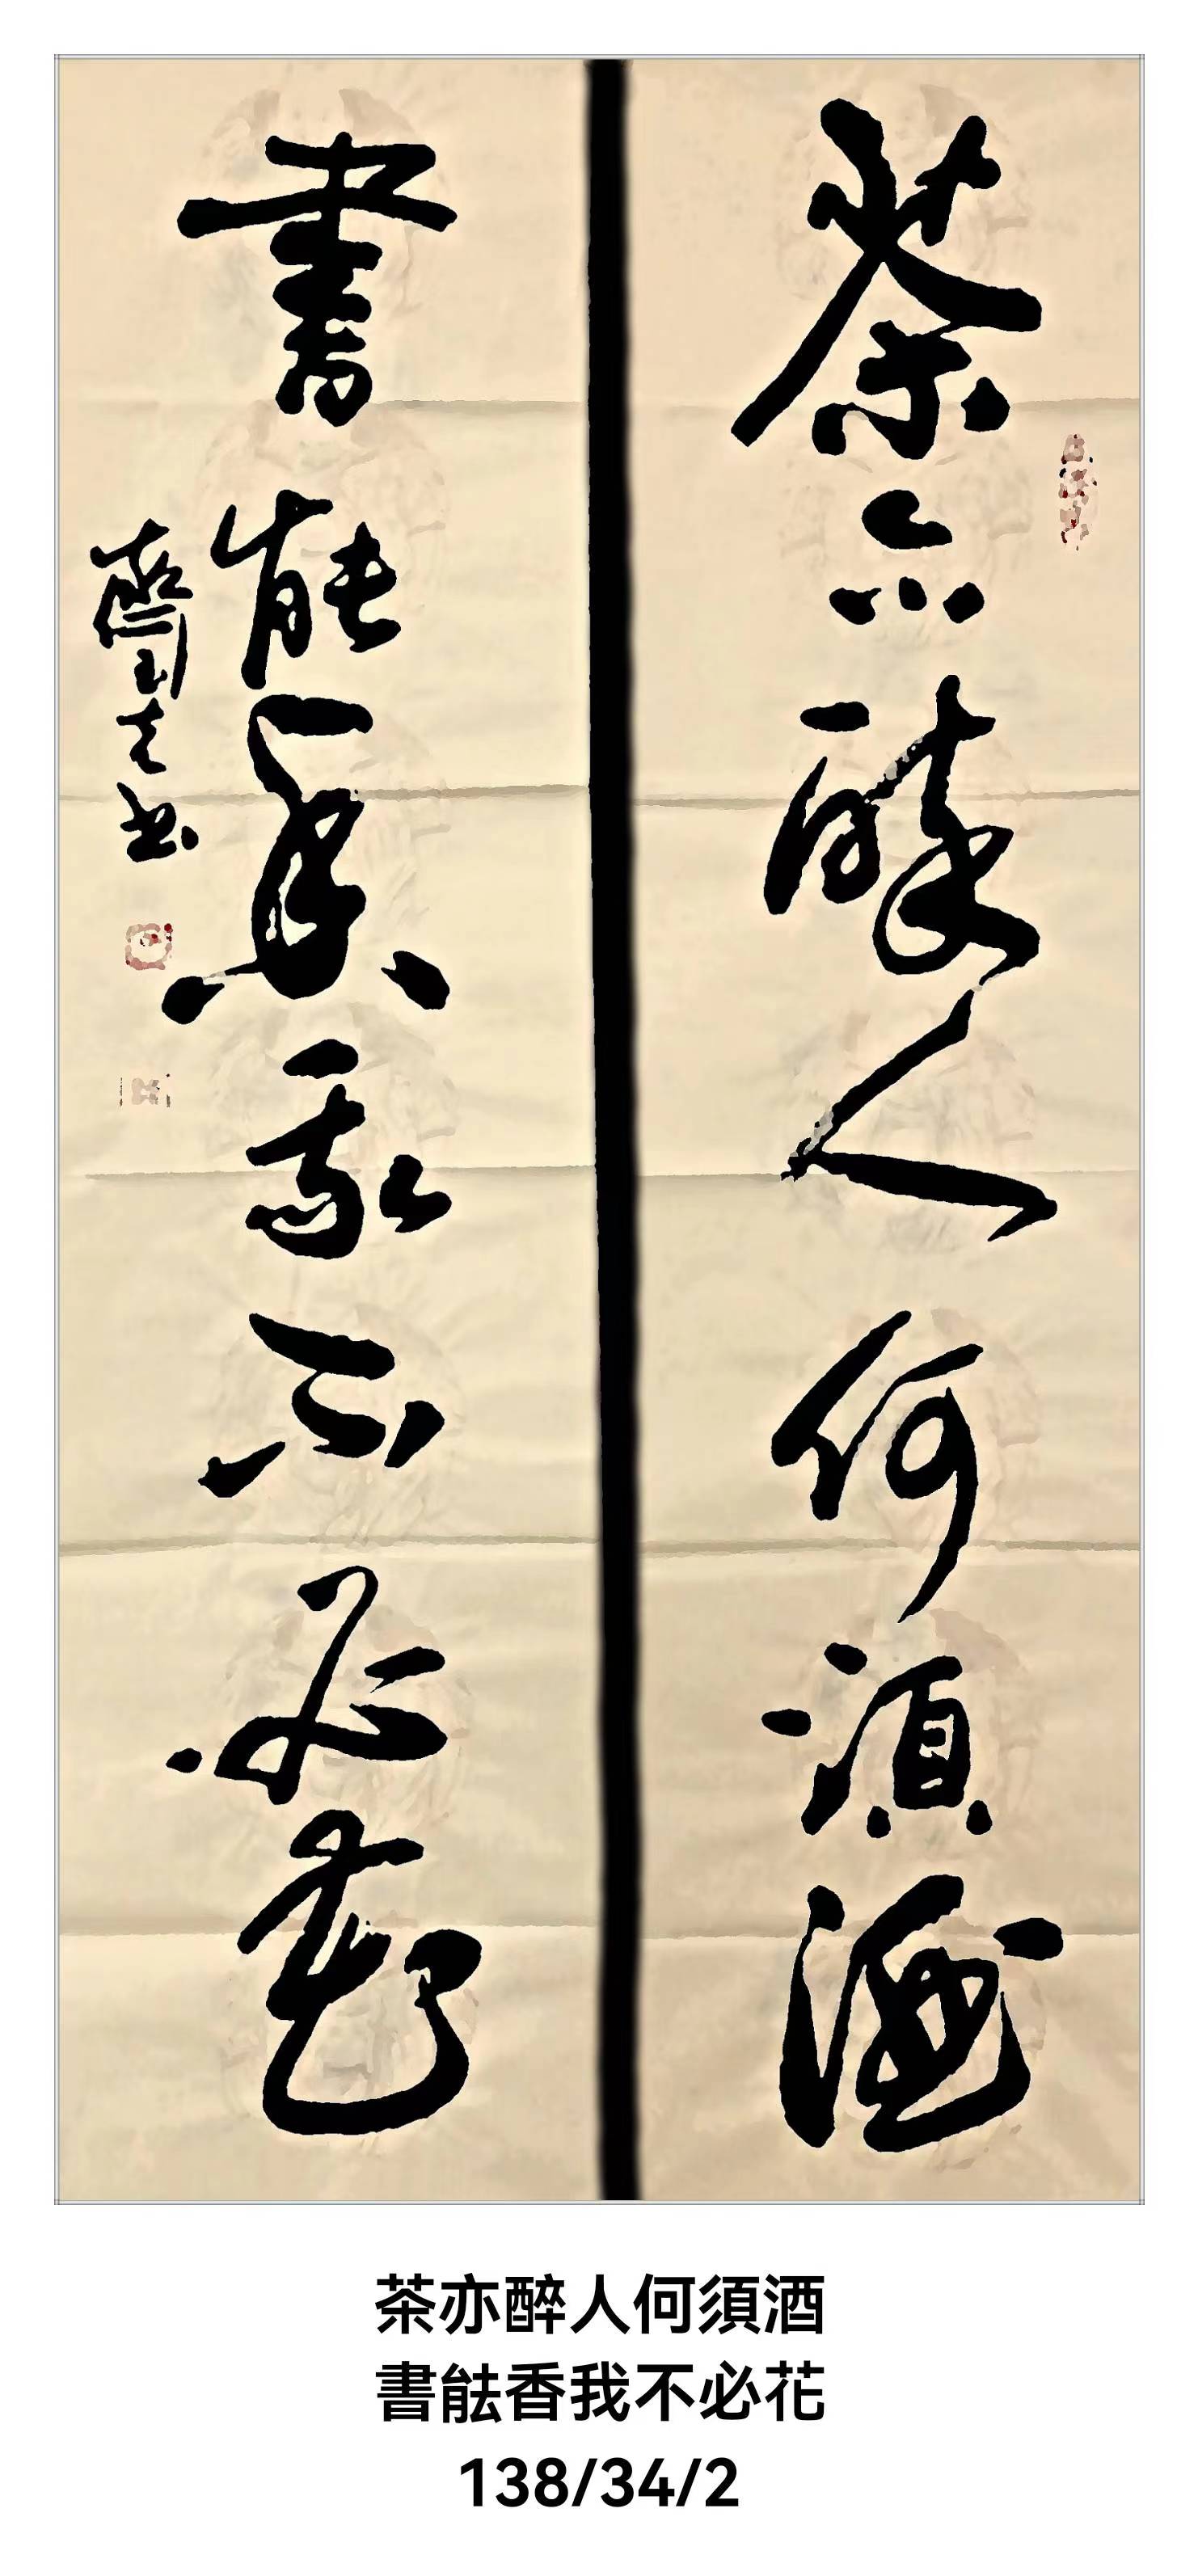 茶亦醉人何須酒
書能香我不必花
茶亦醉人何須酒
書䏻香我不必花
138/34/2